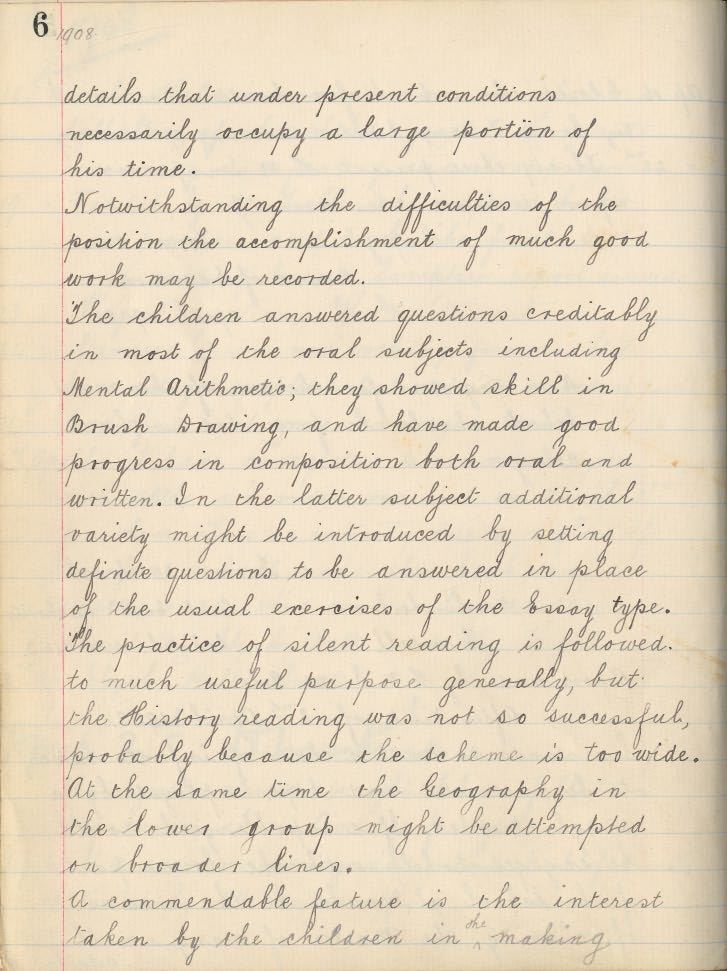 6 1908
details that under present conditions
necessarily occupy a large portion of
his time.
Notwithstanding the difficulties of the
position the accomplishment of much good
work may be recorded.
The children answered questions creditably
in most of the oral subjects including
Mental Arithmetic; they showed skill in
Brush Drawing, and have made good
progress in composition both oral and
written. In the latter subject additional
variety might be introduced by setting
definite questions to be answered in place
of the usual exercises of the Essay type.
The practice of silent reading is followed.
to much useful purpose generally, but
the History reading was not so successful,
probably because the scheme is too wide.
At the same time the Geography in
the lower group might be attempted
on broader lines.
A commendable feature is the interest
taken by the children in the making